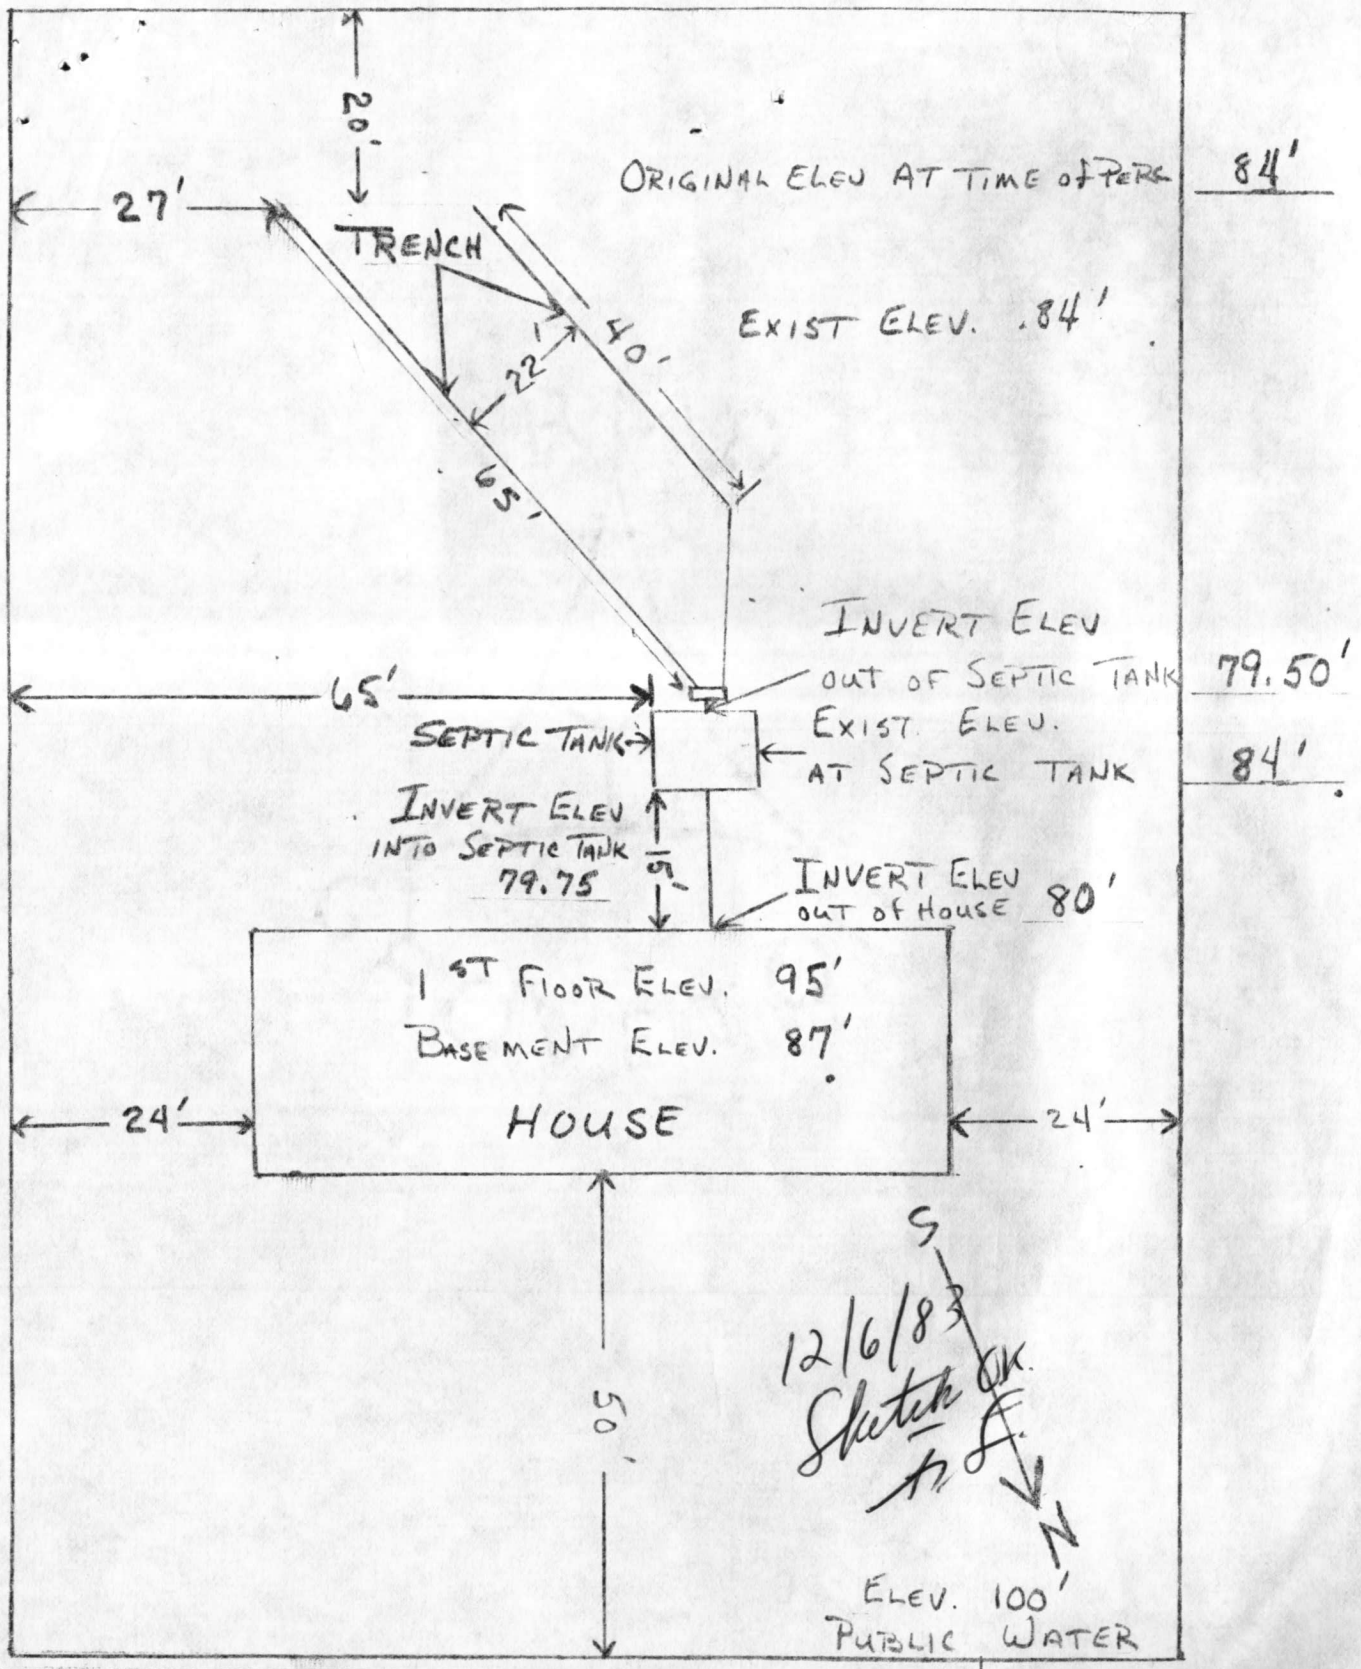 20'
ORIGINAL ELEV AT TIME of PERC 84'
27'
TRENCH
EXIST ELEV. 84'
40'
22'
65'
INVERT ELEV
OUT OF SEPTIC TANK 79.50'
65'
SEPTIC TANK
EXIST. ELEV.
AT SEPTIC TANK 84'
INVERT ELEV
INTO SEPTIC TANK
79.75
15'
INVERT ELEV
OUT OF HOUSE 80'
1ST FLOOR ELEV. 95'
BASEMENT ELEV. 87'
24'
HOUSE
24'
S
12/6/83
Sketch OK.
50'
N
ELEV. 100'
PUBLIC WATER